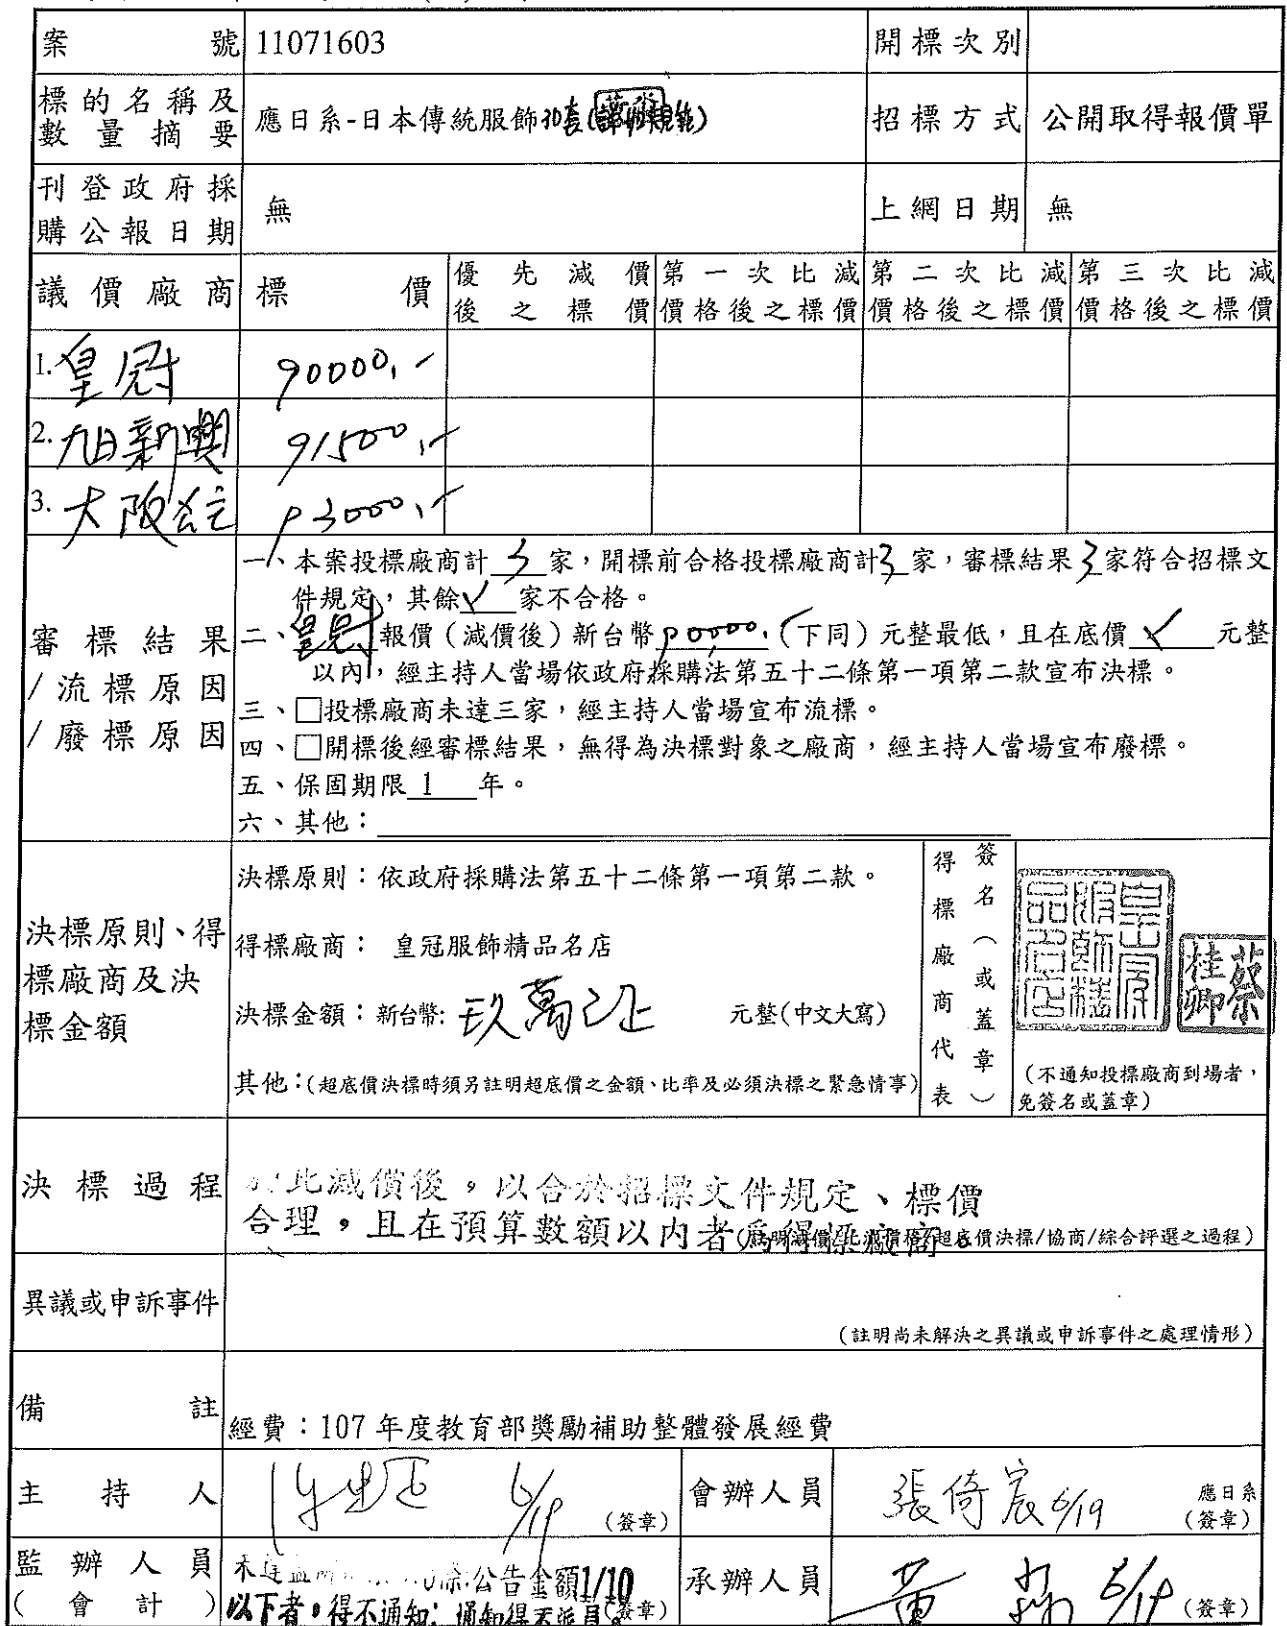 案號 11071603 開標次別
標的名稱及數量摘要 應日系-日本傳統服飾
招標方式 公開取得報價單
刊登政府採購公報日期 無 上網日期 無
議價廠商 標價 優先減價後之標價 第一次比減價格後之標價 第二次比減價格後之標價 第三次比減價格後之標價
1. 皇冠 90000.-
2. 旭新興 91500.-
3. 大阪 93000.-
審標結果/流標原因/廢標原因
一、本案投標廠商計 3 家,開標前合格投標廠商計 3 家,審標結果 3 家符合招標文
件規定,其餘 ✓ 家不合格。
二、皇冠報價(減價後)新台幣 90000. (下同)元整最低,且在底價 ✓ 元整
以內,經主持人當場依政府採購法第五十二條第一項第二款宣布決標。
三、□投標廠商未達三家,經主持人當場宣布流標。
四、□開標後經審標結果,無得為決標對象之廠商,經主持人當場宣布廢標。
五、保固期限 1 年。
六、其他:
決標原則、得標廠商及決標金額
決標原則:依政府採購法第五十二條第一項第二款。
得標廠商: 皇冠服飾精品名店
決標金額:新台幣: 玖萬 元整(中文大寫)
其他:(超底價決標時須另註明超底價之金額、比率及必須決標之緊急情事)
得標廠商代表
簽名(或蓋章)
蔡桂卿
(不通知投標廠商到場者,
免簽名或蓋章)
決標過程
比減價後,以合於招標文件規定、標價
合理,且在預算數額以內者為得標廠商。
超底價決標/協商/綜合評選之過程)
異議或申訴事件
(註明尚未解決之異議或申訴事件之處理情形)
備註 經費:107 年度教育部獎勵補助整體發展經費
主持人 6/19 (簽章) 會辦人員 張倚宸 6/19 應日系
(簽章)
監辦人員(會計) 公告金額1/10
以下者,得不通知;通知得不派員。(簽章)
承辦人員 黃 6/19 (簽章)